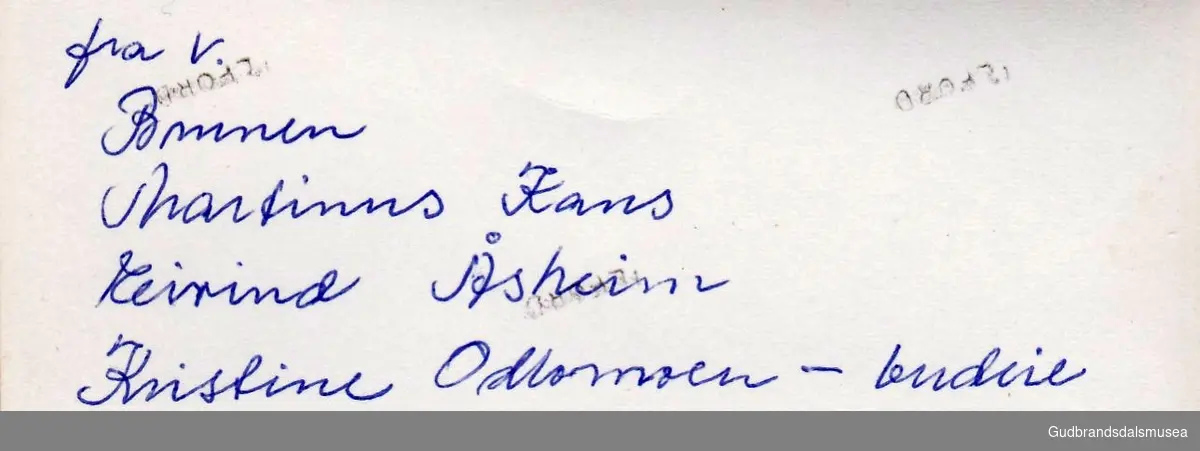 fra v.
Brunen
Martinus Kans
Eivind Åsheim
Kristine Odlomoen – budeie
Gudbrandsdalsmusea